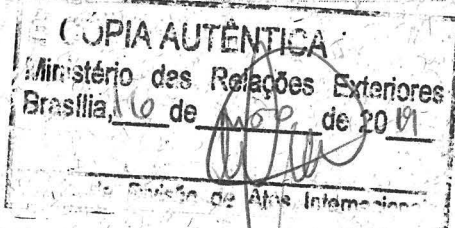 CÓPIA AUTÊNTICA
Ministério das Relações Exteriores
Brasília, 16 de de 20 19
Divisão de Atos Internacionais